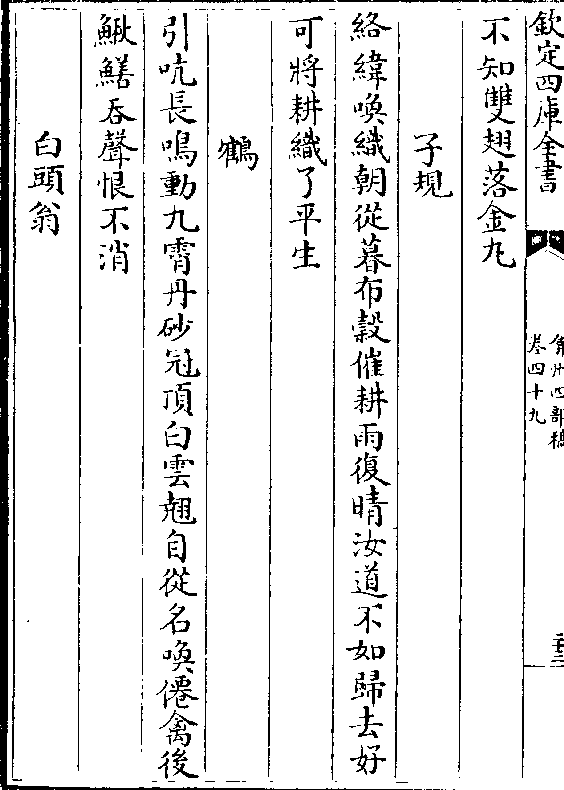 欽定四庫全書
弇州四部稿
卷四十九
不知雙翅落金丸
子規
絡緯喚織朝從暮布穀催耕雨復晴汝道不如歸去好
可將耕織了平生
鶴
引吭長鳴動九霄丹砂冠頂白雲翹自從名喚僊禽後
鰍鱔吞聲恨不消
白頭翁